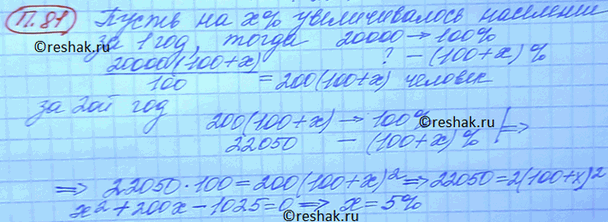 П.81 Пусть на x% увеличивалось населении
за 1 год, тогда 20000 → 100%
? – (100+x)%
20000(100+x)/100 = 200(100+x) человек
за 2ой год
200(100+x) → 100%
22050 – (100+x)% | ⇒
⇒ 22050·100=200(100+x)² ⇒ 22050=2(100+x)²
x²+200x–1025=0 ⇒ x=5%
©reshak.ru
©reshak.ru
©reshak.ru
©reshak.ru